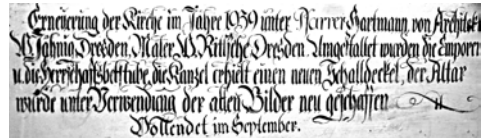 Erneuerung der Kirche im Jahre 1939 unter Pfarrer Hartmann, von Architekt
W. Jahnig, Dresden. Maler, W. Ritzsche Dresden. Umgestaltet wurden die Emporen
u. die Herrschaftsbetstube, die Kanzel erhielt einen neuen Schalldeckel, der Altar
wurde unter Verwendung der alten Bilder neu geschaffen
Vollendet im September.